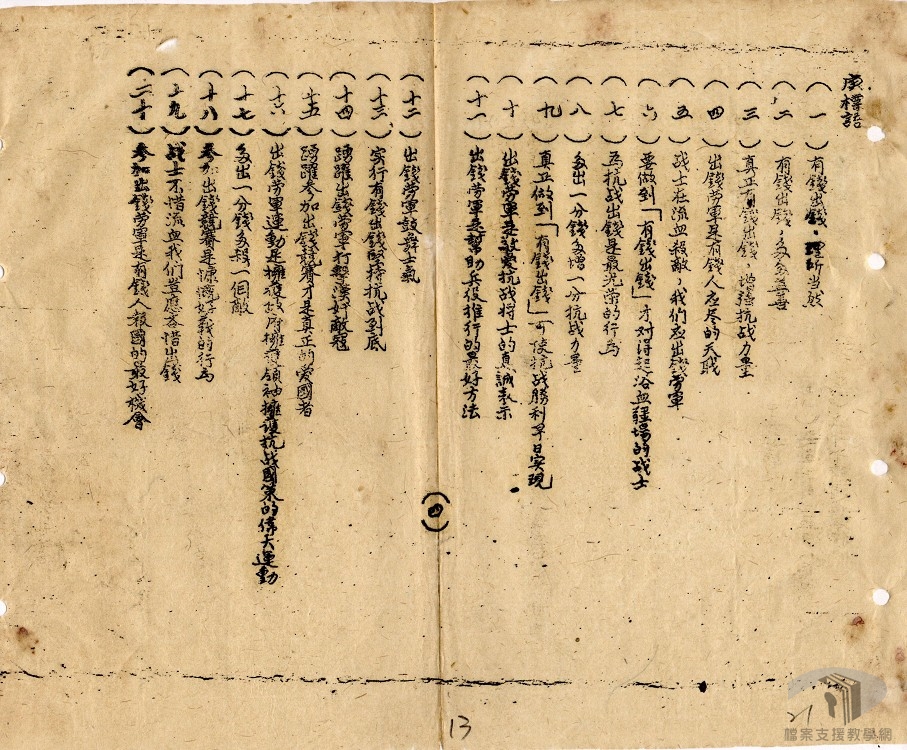 庚標語
（一）有錢出錢，理所当然
（二）有錢出錢，多多益善
（三）真正有錢出錢，增强抗战力量
（四）出錢劳軍是有錢人应尽的天职
（五）战士在流血殺敵，我们应出錢劳軍
（六）要做到「有錢出錢」才对得起浴血疆場的战士
（七）為抗战出錢是最光荣的行為
（八）多出一分錢多增一分抗战力量
（九）真正做到「有錢出錢」可使抗战勝利早日实現
（十）出錢劳軍是敬爱抗战将士的真誠表示
（十一）出錢劳軍是幫助兵役推行的最好方法
（四）
（十二）出錢劳軍鼓舞士氣
（十三）实行有錢出錢堅持抗战到底
（十四）踴躍出錢劳軍打擊漢奸敵寇
（十五）踴躍参加出錢競賽才是真正的爱國者
（十六）出錢劳軍運動是擁護政府擁護領袖擁護抗战國策的偉大運動
（十七）多出一分錢多殺一個敵
（十八）参加出錢競賽是慷慨好義的行為
（十九）战士不惜流血我们豈應吝惜出錢
（二十）参加出錢劳軍是有錢人報國的最好機會
13
21
檔案支援教學網